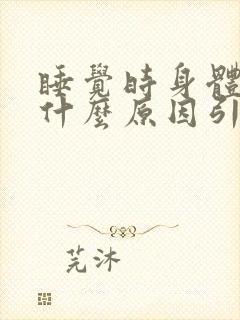 睡覺時身體
什麼原因引
芫沐